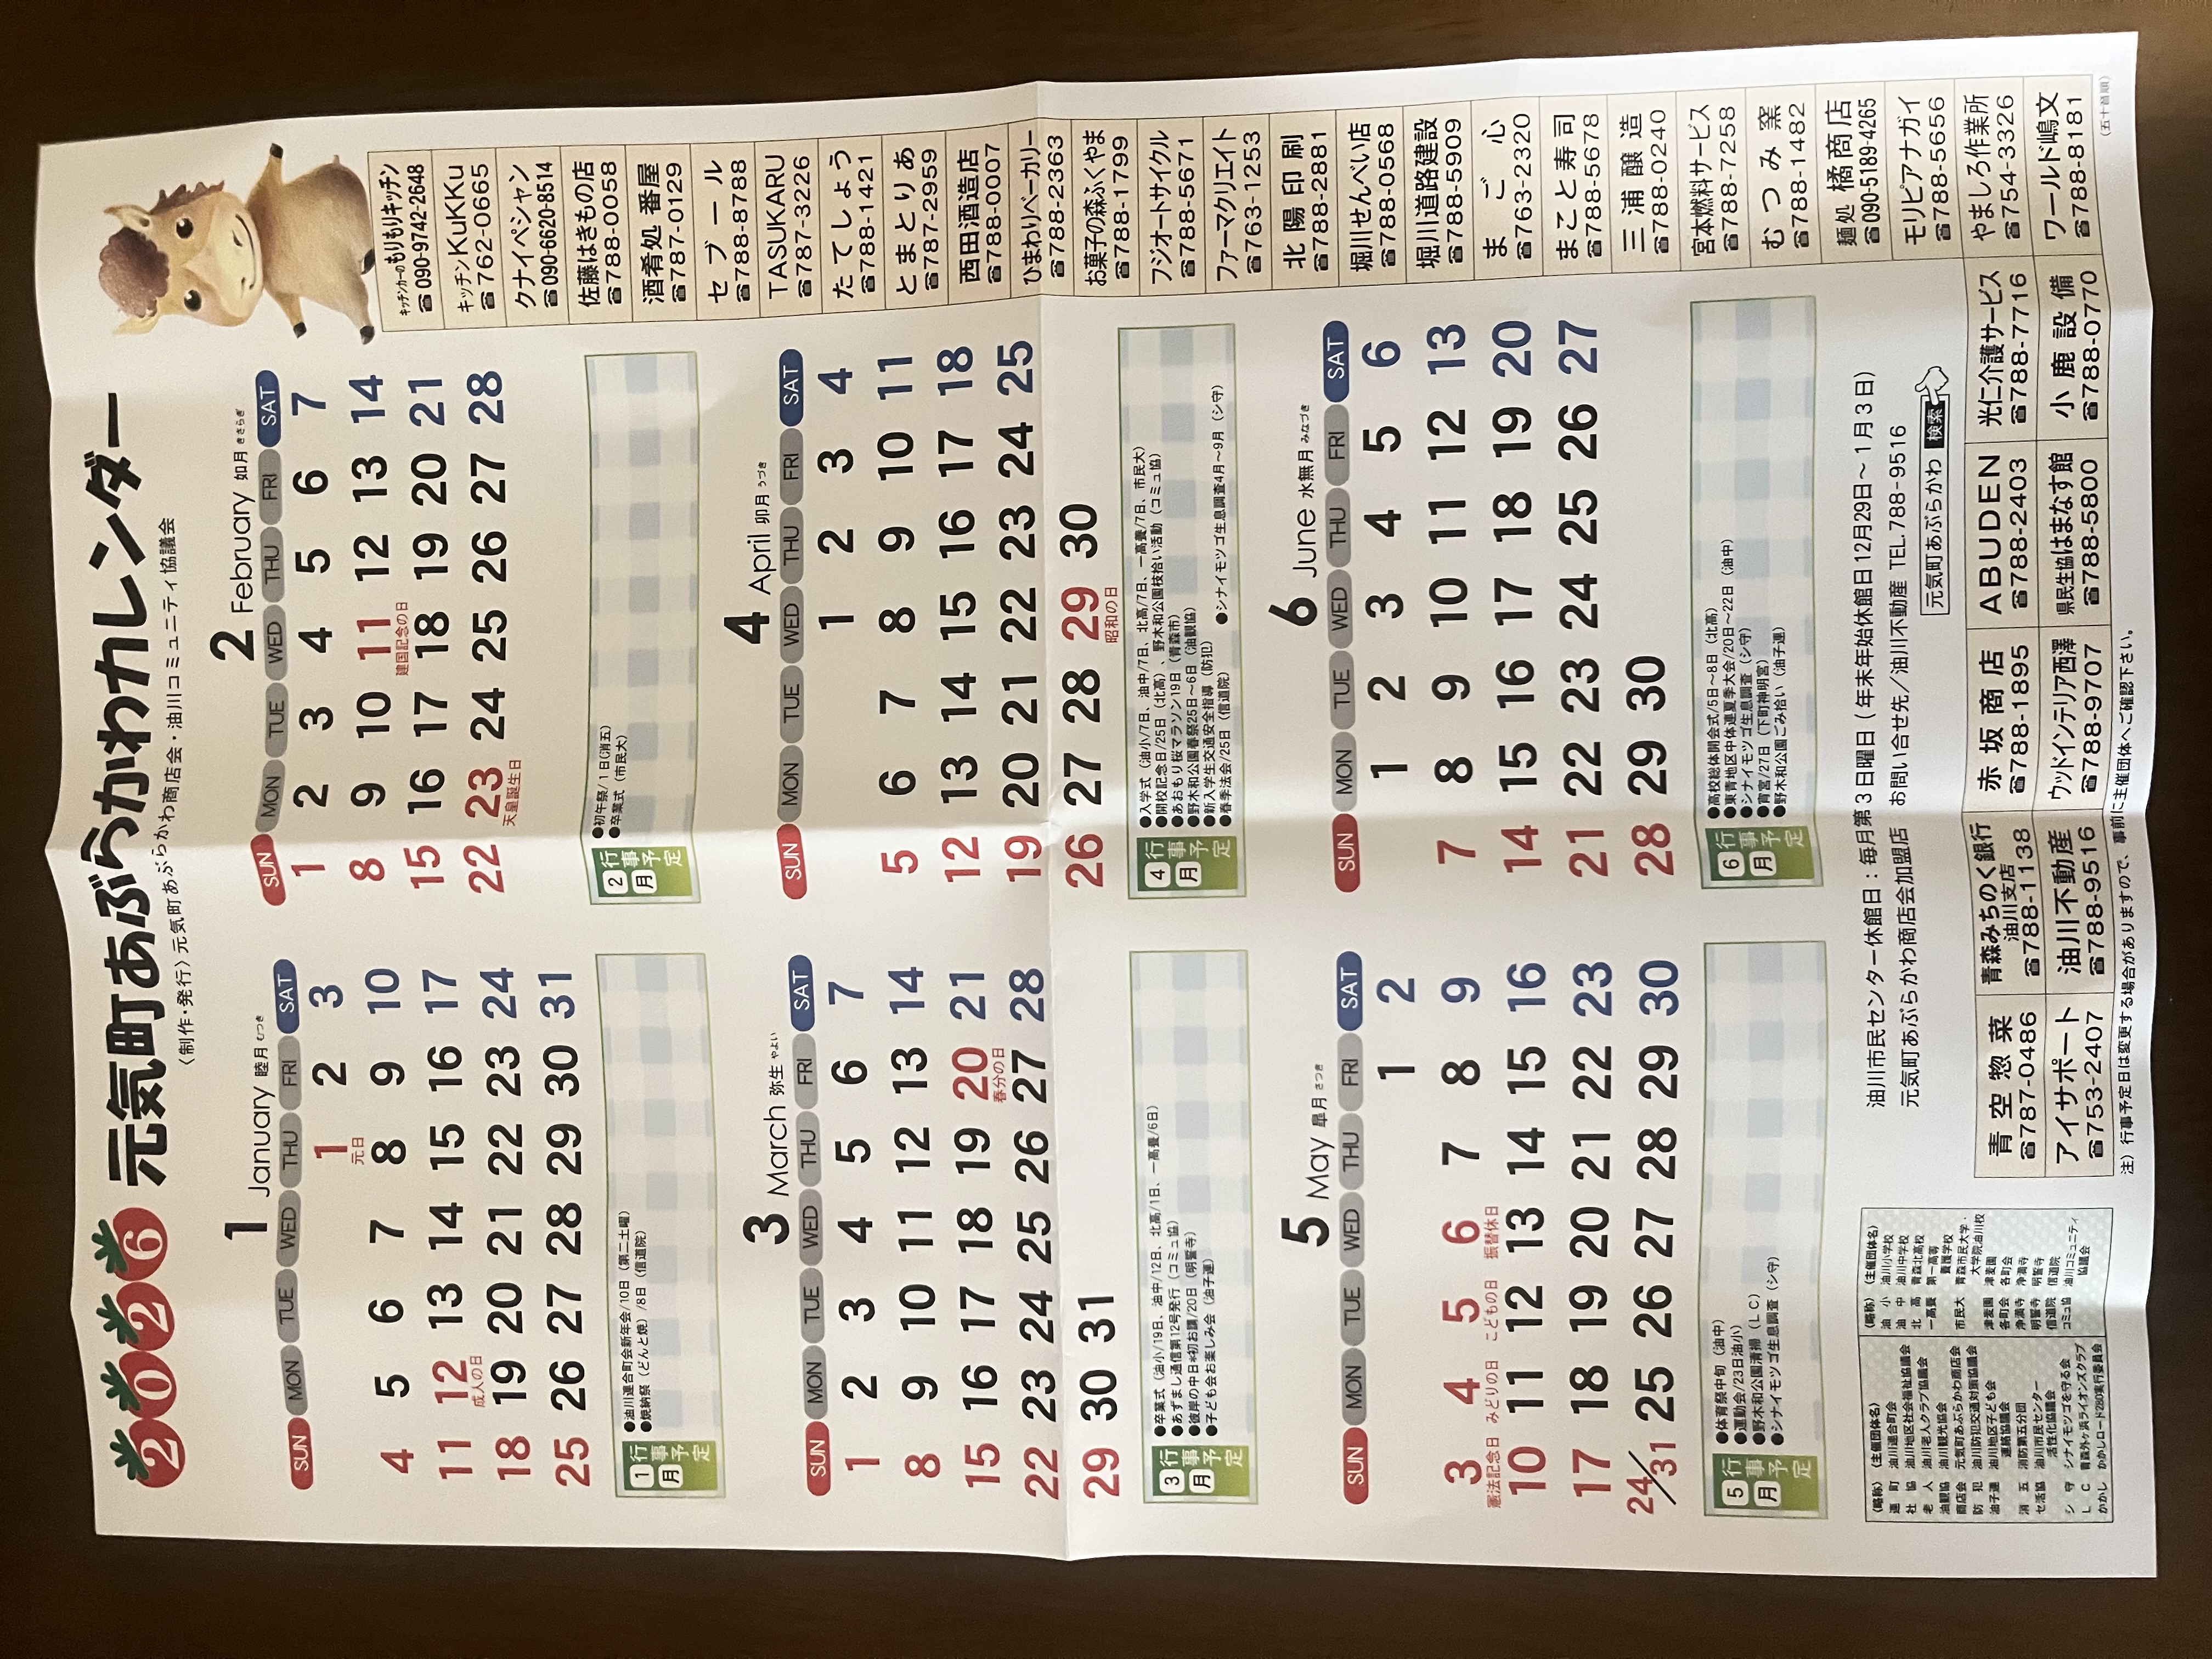 2026 元気町あぶらかわカレンダー
〈制作・発行〉元気町あぶらかわ商店会・油川コミュニティ協議会
1 January 睦月 むつき
SUN MON TUE WED THU FRI SAT
1 2 3
元日
4 5 6 7 8 9 10
11 12 13 14 15 16 17
成人の日
18 19 20 21 22 23 24
25 26 27 28 29 30 31
1月行事予定
●油川連合町会新年会/10日（第二土曜）
●焼納祭（どんと焼）/8日（信道院）
2 February 如月 きさらぎ
SUN MON TUE WED THU FRI SAT
1 2 3 4 5 6 7
8 9 10 11 12 13 14
建国記念の日
15 16 17 18 19 20 21
22 23 24 25 26 27 28
天皇誕生日
2月行事予定
●初午祭/1日(消五)
●卒業式（市民大）
3 March 弥生 やよい
SUN MON TUE WED THU FRI SAT
1 2 3 4 5 6 7
8 9 10 11 12 13 14
15 16 17 18 19 20 21
春分の日
22 23 24 25 26 27 28
29 30 31
3月行事予定
●卒業式（油小/19日、油中/12日、北高/1日、一高養/6日）
●あずまし通信第12号発行（コミュ協）
●彼岸の中日*初お講/20日（明誓寺）
●子ども会お楽しみ会（油子連）
4 April 卯月 うづき
SUN MON TUE WED THU FRI SAT
1 2 3 4
5 6 7 8 9 10 11
12 13 14 15 16 17 18
19 20 21 22 23 24 25
26 27 28 29 30
昭和の日
4月行事予定
●入学式（油小/7日、油中/7日、北高/7日、一高養/7日、市民大）
●開校記念日/25日（北高）、野木和公園枝拾い活動（コミュ協）
●あおもり桜マラソン19日（青森市）
●野木和公園春祭25日～6日（油観協）
●新入学生交通安全指導（防犯）
●春季法会/25日（信道院） ●シナイモツゴ生息調査4月～9月（シ守）
5 May 皐月 さつき
SUN MON TUE WED THU FRI SAT
1 2
3 4 5 6 7 8 9
憲法記念日 みどりの日 こどもの日 振替休日
10 11 12 13 14 15 16
17 18 19 20 21 22 23
24/31 25 26 27 28 29 30
5月行事予定
●体育祭中旬（油中）
●運動会/23日油小）
●野木和公園清掃（ＬＣ）
●シナイモツゴ生息調査（シ守）
6 June 水無月 みなづき
SUN MON TUE WED THU FRI SAT
1 2 3 4 5 6
7 8 9 10 11 12 13
14 15 16 17 18 19 20
21 22 23 24 25 26 27
28 29 30
6月行事予定
●高校総体開会式/5日～8日（北高）
●東青地区中体連夏季大会/20日～22日（油中）
●シナイモツゴ生息調査（シ守）
●宵宮/27日（下町神明宮）
●野木和公園ごみ拾い（油子連）
キッチンカーのもりもりキッチン
☎090-9742-2648
キッチンKuKKu
☎762-0665
クナイペシャン
☎090-6620-8514
佐藤はきもの店
☎788-0058
酒肴処 番屋
☎787-0129
セブール
☎788-8788
TASUKARU
☎787-3226
たてしょう
☎788-1421
とまとりあ
☎787-2959
西田酒造店
☎788-0007
ひまわりベーカリー
☎788-2363
お菓子の森ふくやま
☎788-1799
フジオートサイクル
☎788-5671
ファーマクリエイト
☎763-1253
北陽印刷
☎788-2881
堀川せんべい店
☎788-0568
堀川道路建設
☎788-5909
まご心
☎763-2320
まこと寿司
☎788-5678
三浦醸造
☎788-0240
宮本燃料サービス
☎788-7258
むつみ窯
☎788-1482
麺処 橘商店
☎090-5189-4265
モリピアナガイ
☎788-5656
やましろ作業所
☎754-3326
ワールド嶋文
☎788-8181
（五十音順）
油川市民センター休館日：毎月第3日曜日（年末年始休館日12月29日～1月3日）
元気町あぶらかわ商店会加盟店 お問い合せ先／油川不動産 TEL.788-9516
元気町あぶらかわ 検索
青空惣菜
☎787-0486
青森みちのく銀行
油川支店
☎788-1138
赤坂商店
☎788-1895
ABUDEN
☎788-2403
光仁介護サービス
☎788-7716
アイサポート
☎753-2407
油川不動産
☎788-9516
ウッドインテリア西澤
☎788-9707
県民生協はまなす館
☎788-5800
小鹿設備
☎788-0770
注）行事予定日は変更する場合がありますので、事前に主催団体へご確認下さい。
〈略称〉〈主催団体名〉
連町 油川連合町会
社協 油川地区社会福祉協議会
老人 油川老人クラブ協議会
油観協 油川観光協会
商店会 元気町あぶらかわ商店会
防犯 油川防犯交通対策協議会
油子連 油川地区子ども会
連絡協議会
消五 消防第五分団
セ活協 油川市民センター
活性化協議会
シ守 シナイモツゴを守る会
ＬＣ 青森外ヶ浜ライオンズクラブ
かかし かかしロード280実行委員会
〈略称〉〈主催団体名〉
油小 油川小学校
油中 油川中学校
北高 青森北高校
一高養 第一高等
養護学校
市民大 青森市民大学・
大学院油川校
津麦園 津麦園
各町会 各町会
浄満寺 浄満寺
明誓寺 明誓寺
信道院 信道院
コミュ協 油川コミュニティ
協議会